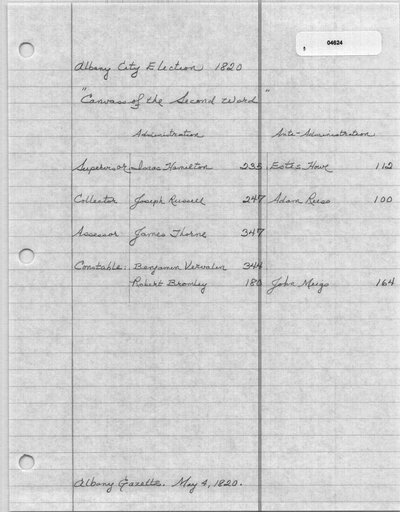 04624
Albany City Election 1820
"Canvass of the Second Ward"
Administration Anti-Administration
Supervisor Isaac Hamilton 235 Estes Howe 112
Collector Joseph Russell 247 Adam Russ 100
Assessor James Thorne 347
Constable: Benjamin Vervalin 344
Robert Bromley 180 John Meigs 164
Albany Gazette. May 4, 1820.